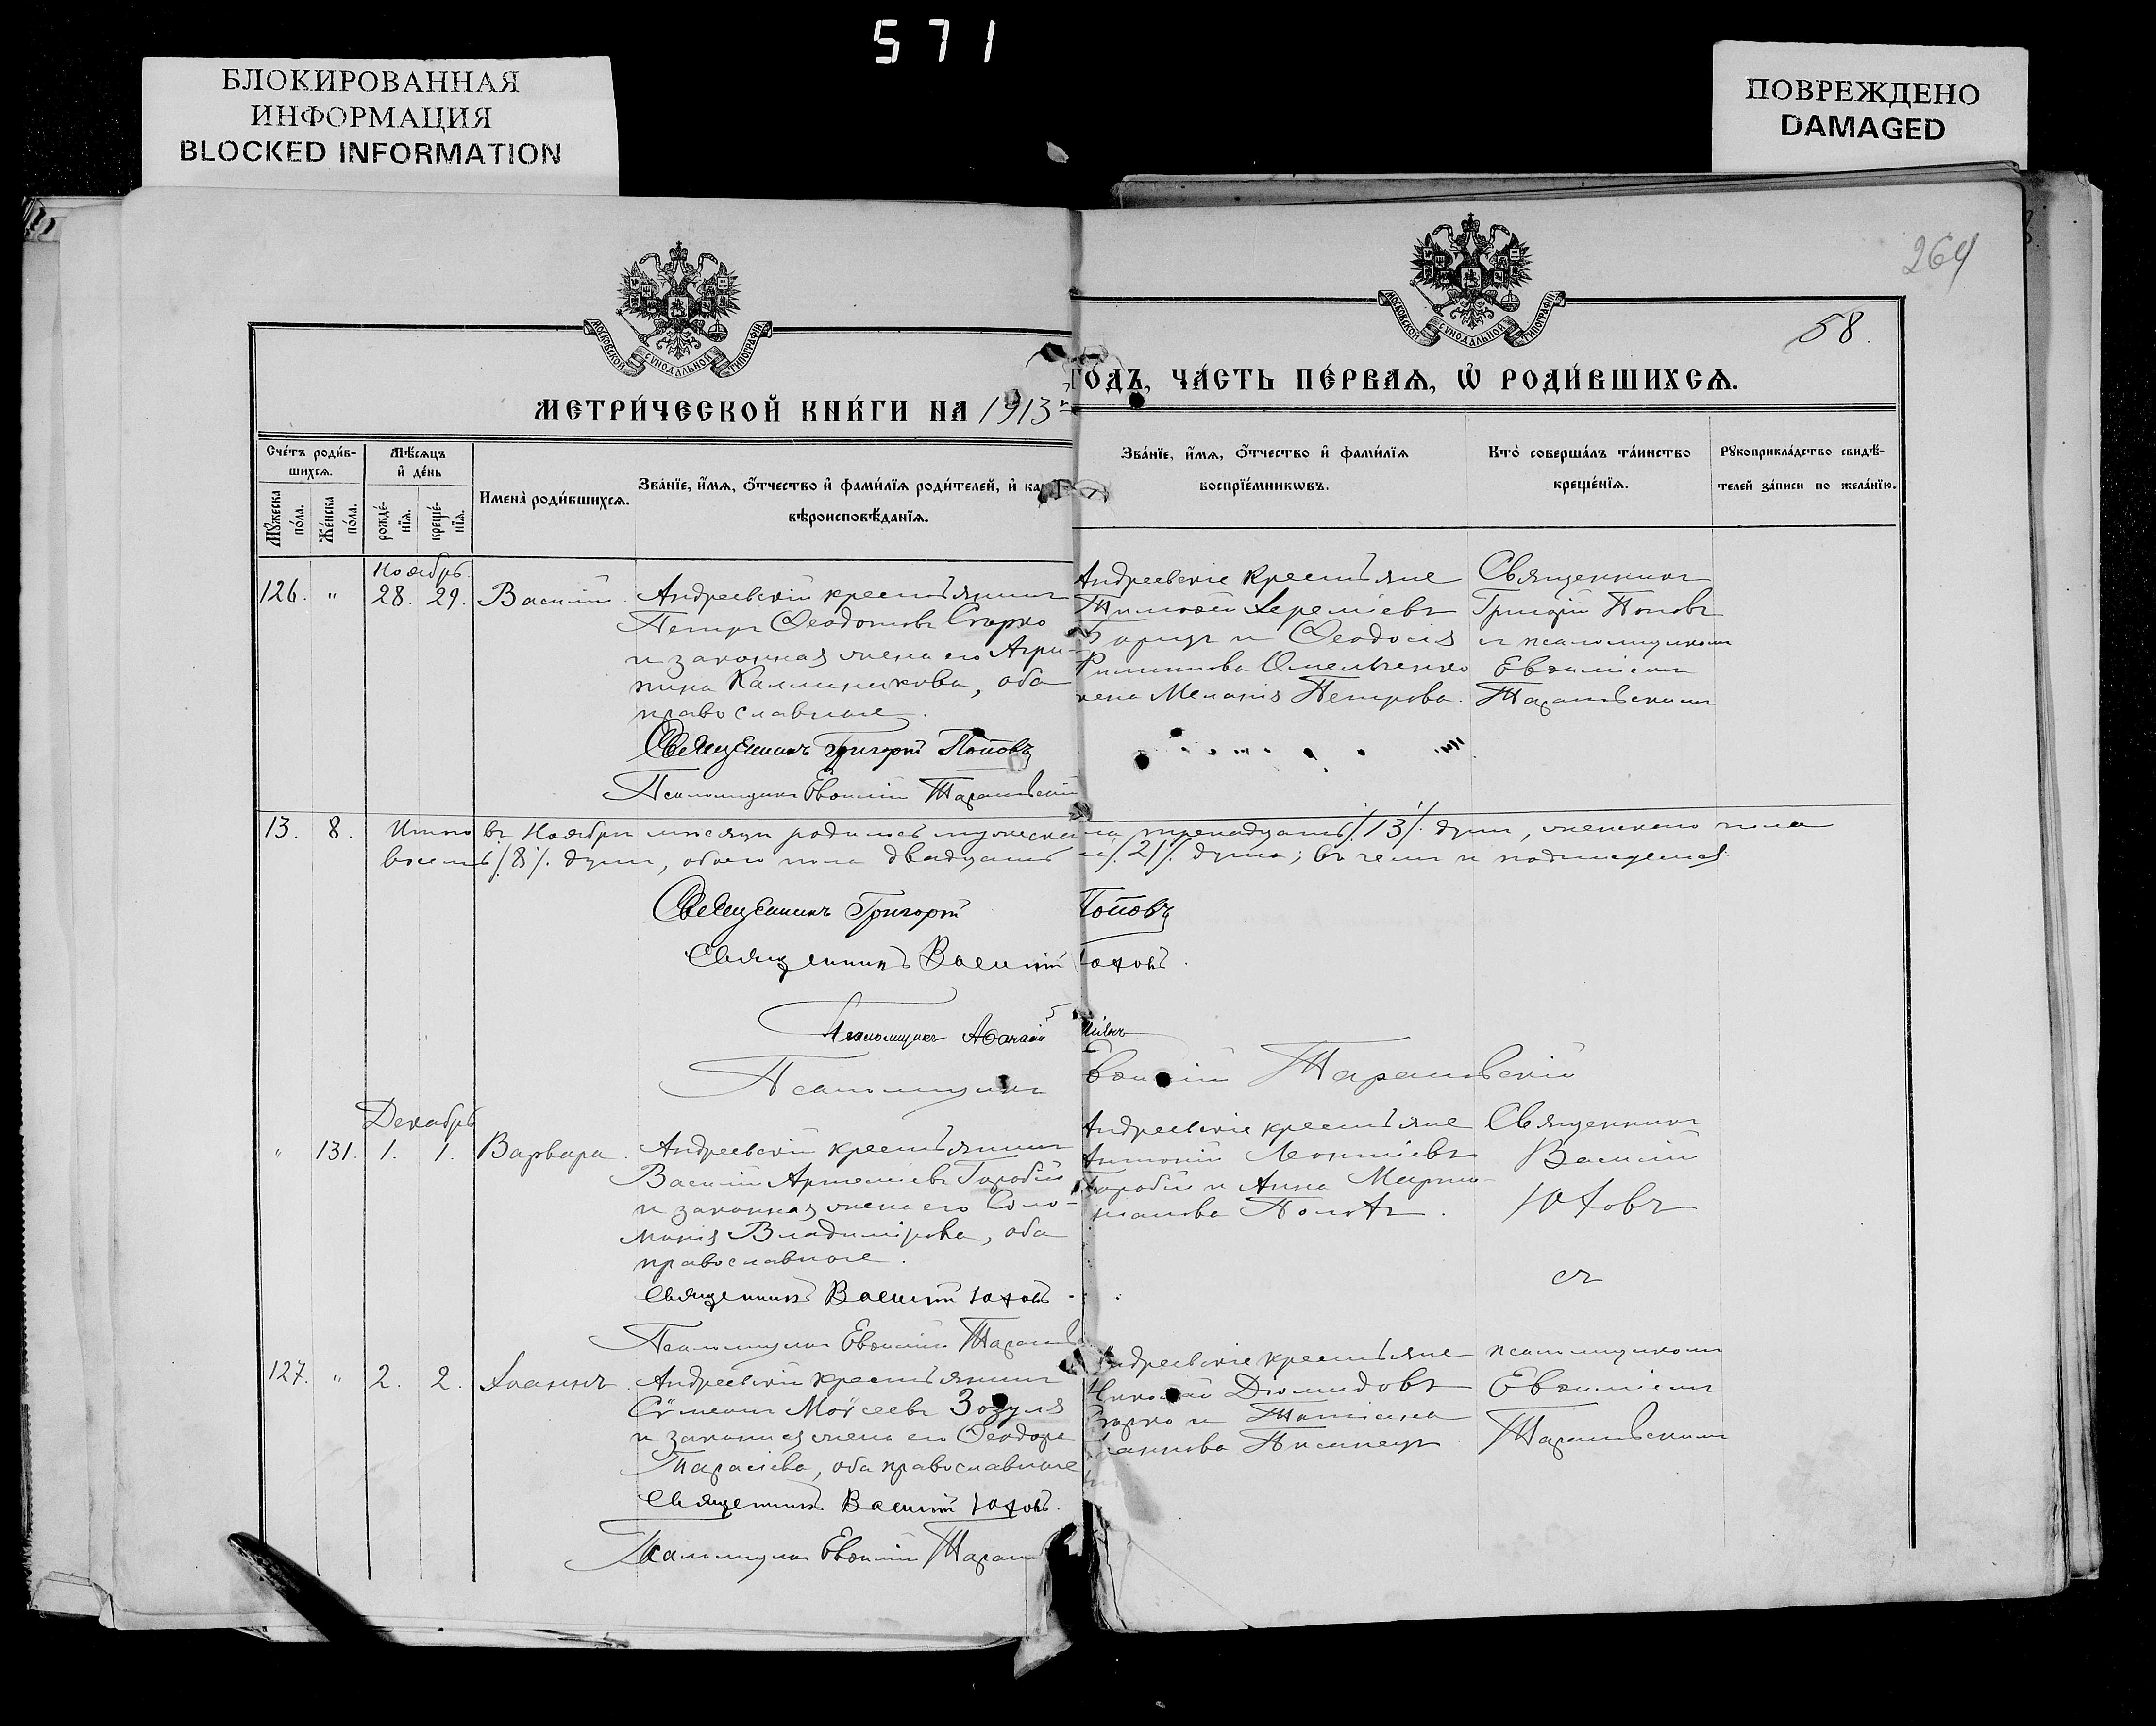 571
БЛОКИРОВАННАЯ
ИНФОРМАЦИЯ
BLOCKED INFORMATION
ПОВРЕЖДЕНО
DAMAGED
264
58.
МОСКОВСКОЙ СУНОДАЛЬНОЙ ТИПОГРАФІИ
МОСКОВСКОЙ СУНОДАЛЬНОЙ ТИПОГРАФІИ
МЕТРИ́ЧЕСКОЙ КНИ́ГИ НА 1913й
ГО́ДЪ, ЧА́СТЬ ПЕ́РВАѦ, Ѡ҆ РОДИ́ВШИХСѦ.
Сче́тъ роди́в-
шихсѧ.
Мꙋ́жеска
по́ла.
Же́нска
по́ла.
Мѣ́сѧцъ
и҆ де́нь
рожде́-
нїѧ.
креще́-
нїѧ.
Имена̀ роди́вшихсѧ.
Зва́нїе, и҆́мѧ, ѻ҆́тчество и҆ фами́лїѧ роди́телей, и҆ ка
вѣроисповѣ́данїѧ.
Зва́нїе, и҆́мѧ, ѻ҆́тчество и҆ фами́лїѧ
воспрїе́мникѡвъ.
Кто̀ соверша́лъ та́инство
креще́нїѧ.
Рꙋкоприкла́дство свидѣ́-
телей за́писи по жела́нїю.
Ноябрь
126. " 28. 29. Василій. Андреевскій крестьянинъ
Петръ Ѳеодотовъ Старко
и законная жена его Агри-
пина Каллиникова, оба
православные.
Священникъ Григорій Поповъ
Псаломщикъ Евѳимій Тарановскій
Андреевскіе крестьяне
Тимоѳей Іереміевъ
и Ѳеодосія
Филиппова Омельченко
жена Меланія Петрова.
Священникъ
Григорій Поповъ
съ псаломщикомъ
Евѳиміемъ
Тарановскимъ
13. 8. Итого въ Ноябрѣ мѣсяцѣ родилось мужеска по ла тринадцать /.13/. душъ, женскаго пола
восемь /.8/. душъ, обоего пола двадцать /.21/. душа; въ чемъ и подписуемся
Священникъ Григорій Поповъ
Священникъ Василій Юховъ.
Псаломщикъ Аѳанасій
Псаломщикъ Евѳимій Тарановскій
Декабрь
" 131. 1. 1. Варвара. Андреевскій крестьянинъ
Василій Артеміевъ Горобій
и законная жена его Соло-
монія Владимірова, оба
православные.
Священникъ Василій Юховъ.
Псаломщикъ Евѳимій Таранов
Андреевскіе крестьяне
Антоній Леонтіевъ
Горобій и Анна Марти-
Священникъ
Василій
Юховъ
съ
псаломщикомъ
Евѳиміемъ
Тарановскимъ
127. " 2. 2. Іоаннъ. Андреевскій крестьянинъ
Сѵмеонъ Моѵсеевъ Зозуля
и законная жена его Ѳеодора
Тарасіева, оба православные
Священникъ Василій Юховъ.
Псаломщикъ Евѳимій Таранов
Андреевскіе крестьяне
Николай Діомидовъ
Старко и Татіана